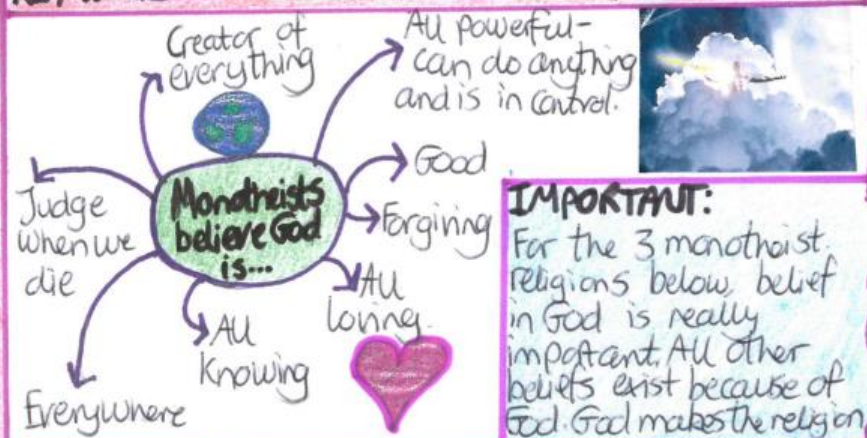 Creator of
everything
All powerful-
can do anything
and is in control.
Good
Forgiving
All
loving.
All
Knowing
Everywhere
Judge
when we
die
Monotheists
believe God
is...
IMPORTANT:
For the 3 monotheist
religions below, belief
in God is really
important. All other
beliefs exist because of
God. God makes the religion